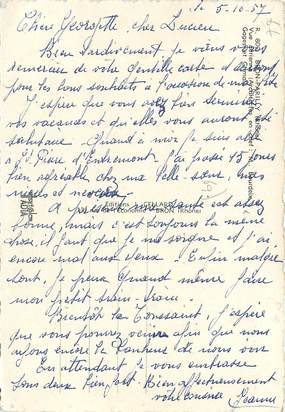 le 5-10.57
Chère Georgette, cher Lucien
Bien tardivement je viens vous
remercier de votre gentille carte et
pour les bons souhaits à l'occasion de ma fête
J'espère que vous avez bien terminé
vos vacances et qu'elles vous auront été
salutaire. Quand à moi je suis allé
à St Pierre d'Entremont j'ai passé 15 jours
bien agréable chez ma belle-sœur, mes
neveux et
A présent ma santé est assez
bonne, mais c'est toujours la même
chose, il faut que je me soigne et j'ai
encore mal aux yeux. Enfin malgré
tout, je peux quand même faire
mon petit train-train.
Bientôt la Toussaint, j'espère
que vous pourrez venir afin que nous
ayons encore le bonheur de nous voir
En attendant je vous embrasse
tous deux bien fort. Bien affectueusement
votre Jeanne
Editions J. CELLARD
BRON (Rhône)